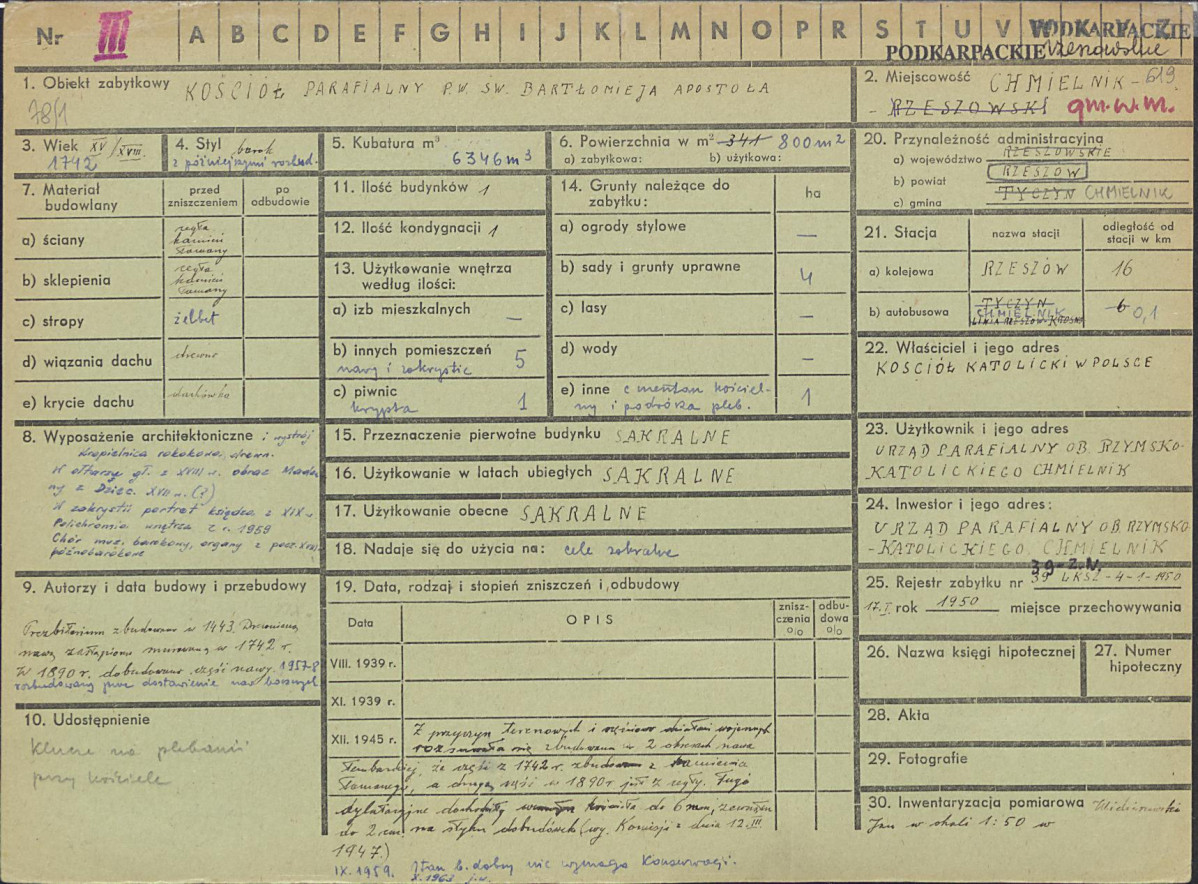 Nr III A B C D E F G H I J K L M N O P R S T U V W X Y Z
PODKARPACKIE
PODKARPACKIE rzeszowskie
1. Obiekt zabytkowy KOŚCIÓŁ PARAFIALNY P.W. ŚW. BARTŁOMIEJA APOSTOŁA
78/1
2. Miejscowość CHMIELNIK - 619
- RZESZOWSKI gm.w.m.
3. Wiek XV/XVIII
1742
4. Styl barok
z późniejszymi rozbud.
5. Kubatura m³
6346 m³
6. Powierzchnia w m² 341 800 m²
a) zabytkowa: b) użytkowa:
20. Przynależność administracyjna
a) województwo RZESZOWSKIE
b) powiat RZESZÓW
c) gmina TYCZYN CHMIELNIK
7. Materiał budowlany
przed zniszczeniem
po odbudowie
a) ściany cegła kamień łamany
b) sklepienia cegła kamień łamany
c) stropy żelbet
d) wiązania dachu drewno
e) krycie dachu dachówka
11. Ilość budynków 1
12. Ilość kondygnacji 1
13. Użytkowanie wnętrza
według ilości:
a) izb mieszkalnych –
b) innych pomieszczeń 5
nawy i zakrystie
c) piwnic 1
krypta
14. Grunty należące do
zabytku: ha
a) ogrody stylowe –
b) sady i grunty uprawne 4
c) lasy –
d) wody –
e) inne cmentarz kościel-
ny i podwórza pleb. 1
21. Stacja nazwa stacji odległość od stacji w km
a) kolejowa RZESZÓW 16
b) autobusowa TYCZYN 6 0,1
CHMIELNIK
22. Właściciel i jego adres
KOŚCIÓŁ KATOLICKI W POLSCE
8. Wyposażenie architektoniczne: wystrój
Kropielnica rokokowa, drewn.
W ołtarzu gł. z XVIII w. obraz Madon
ny z Dziec. XVII w. (?)
W zakrystii portret księdza z XIX w.
Polichromia wnętrza z r. 1959
Chór muz. barokowy, organy z pocz. XVIII
późnobarokowe
15. Przeznaczenie pierwotne budynku SAKRALNE
16. Użytkowanie w latach ubiegłych SAKRALNE
17. Użytkowanie obecne SAKRALNE
18. Nadaje się do użycia na: cele sakralne
23. Użytkownik i jego adres
URZĄD PARAFIALNY OB. RZYMSKO-
KATOLICKIEGO CHMIELNIK
24. Inwestor i jego adres:
URZĄD PARAFIALNY OB RZYMSKO
-KATOLICKIEGO CHMIELNIK
39-Z.N.
25. Rejestr zabytku nr 39 LKSZ-4-1-1950
17.I rok 1950 miejsce przechowywania
9. Autorzy i data budowy i przebudowy
Prezbiterium zbudowano w 1443. Drewnianą
nawę zastąpiono murowaną w 1742 r.
W 1890 r. dobudowano część nawy. 1957-8
rozbudowany przez dostawienie naw bocznych
10. Udostępnienie
Klucze na plebanii
przy kościele
19. Data, rodzaj i stopień zniszczeń i odbudowy
Data OPIS znisz-czenia % odbu-dowa %
VIII. 1939 r.
XI. 1939 r.
XII. 1945 r.
Z przyczyn terenowych i częściowo działań wojennych
rozsunęła się zbudowana w 2 okresach nawa
tembardziej, że część z 1742 r. zbudowano z kamienia
łamanego, a druga część w 1890 r już z cegły. Fugi
dylatacyjne dochodzą wewnątrz kościoła do 6 mm, zewnątrz
do 2 cm. na styku dobudówek (wg. Komisji z dnia 12.III.
1947.)
IX.1959. Stan b. dobry nie wymaga konserwacji.
X.1963 j.w.
26. Nazwa księgi hipotecznej
27. Numer hipoteczny
28. Akta
29. Fotografie
30. Inwentaryzacja pomiarowa
Jan w skali 1:50 w